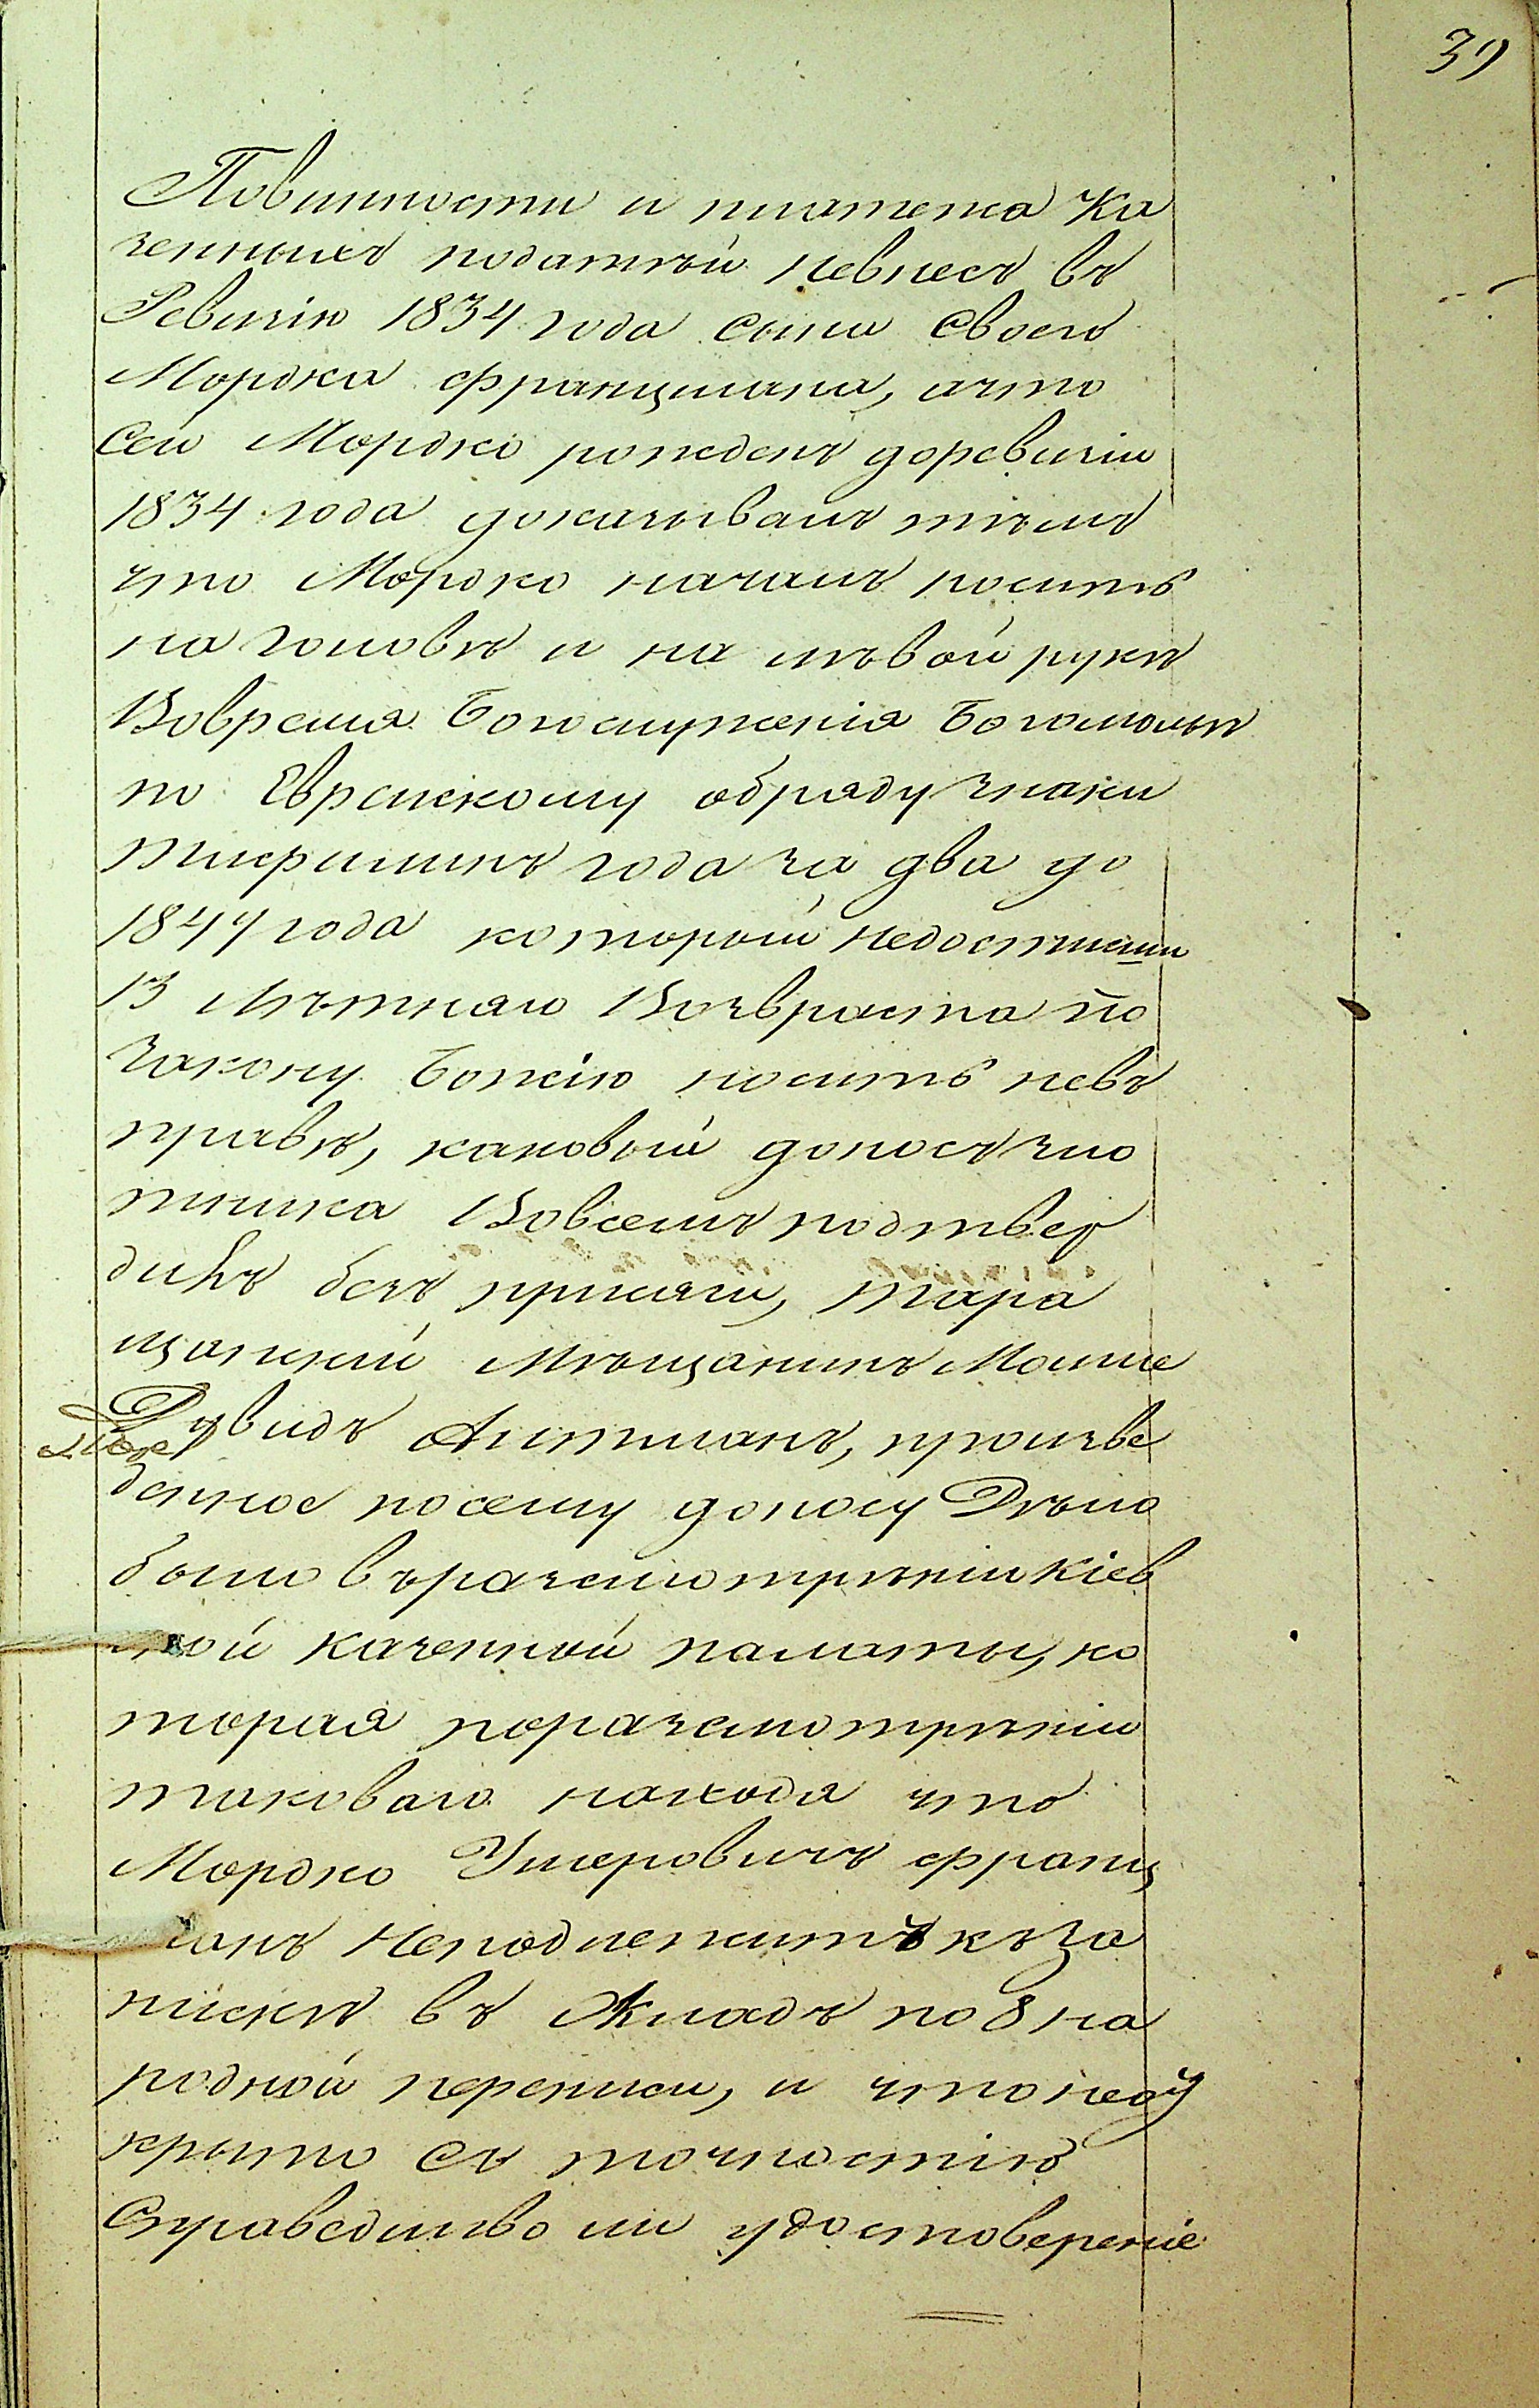 39
Повинности и платежа Ка
зенныхъ податѣй невнесъ въ
Ревизію 1834 года сына Своего
Мордка Францмана, ачто
Сей Мордко рожденъ доревизіи
1834 года доказывалъ тѣмъ
что Мордко началъ носить
на головѣ и на лѣвой рукѣ
Вовремя Богослуженія Богомолья
по Еврейскому обряду знаки
года за два до
1847 года которой недостигши
13 Лѣтнаго Возвраста по
Закону Божію носить невъ
правѣ, каковый доносъ Зло
тника Вовсемъ подтвер
дилъ безъ присяги, Тара
щанскій Мѣщанинъ Мошие
Дувидъ Альтманъ, произве
денное посему доносу Дѣло
было въразсмотрѣніи Кіев
ской Казенной палаты, ко
торая поразсмотрѣніи
таковаго находя что
Мордко Ушеровичъ Францъ
манъ Неподлежитъ къ за
пискѣ въ Окладъ по 8 на
родной переписи, и что
крыто Съ точностію
Справедливо ли удостоверение